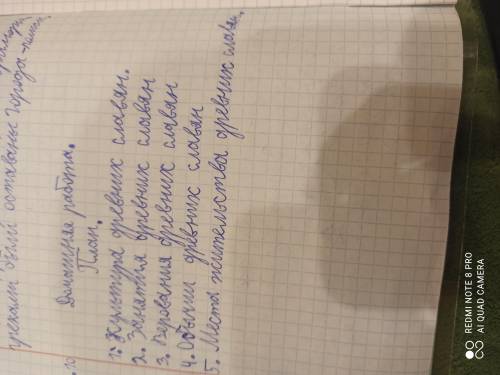 были оставлены города
Домашняя работа.
План.
1. Культура древних славян.
2. Занятия древних славян
3. Верования древних славян
4. Обычаи древних славян
5. Места жительства древних славян.
REDMI NOTE 8 PRO
AI QUAD CAMERA